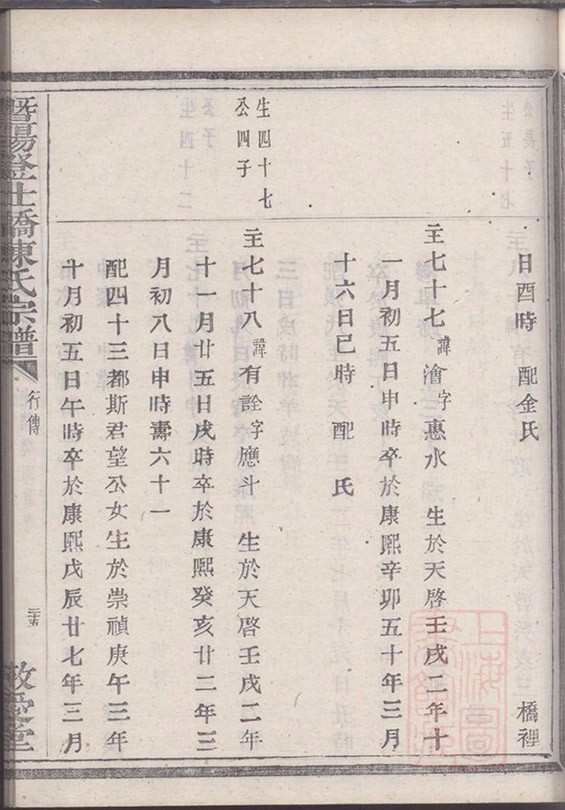 日酉時 配金氏 橋裡
主七十七諱澮字惠水 生於天啓壬戌二年十
一月初五日申時卒於康熙辛卯五十年三月
十六日巳時 配 氏
生四十七
公四子
主七十八諱有詮字應斗 生於天啓壬戌二年
十一月廿五日戌時卒於康熙癸亥廿二年三
月初八日申時壽六十一
配四十三都斯君望公女生於崇禎庚午三年
十月初五日午時卒於康熙戊辰廿七年三月
暨陽登仕橋陳氏宗譜 行傳 敬愛堂